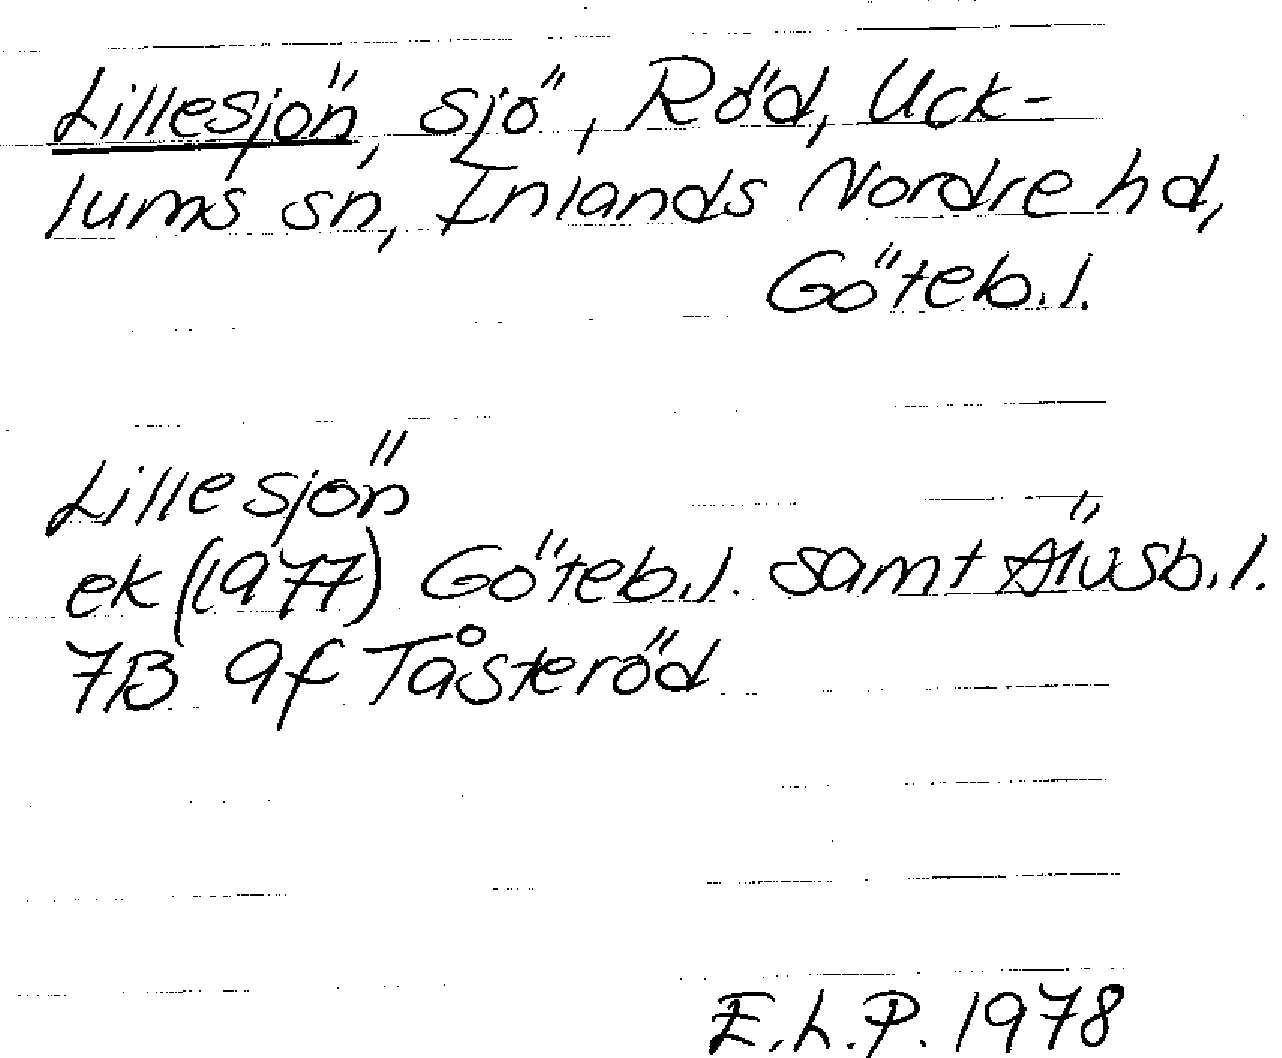 Lillesjön, sjö, Röd, Uck-
lums sn, Inlands Nordre hd,
Göteb.l.
Lillesjön
ek (1977) Göteb.l. samt Älvsb.l.
7B 9f Tåsteröd
E.L.P. 1978